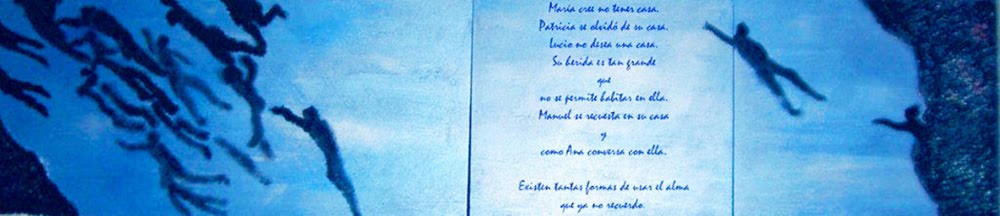 María cree no tener casa.
Patricia se olvidó de su casa.
Lucio no desea una casa.
Su herida es tan grande
que
no se permite habitar en ella.
Manuel se recuesta en su casa
y
como Ana conversa con ella.
Existen tantas formas de usar el alma
que ya no recuerdo.